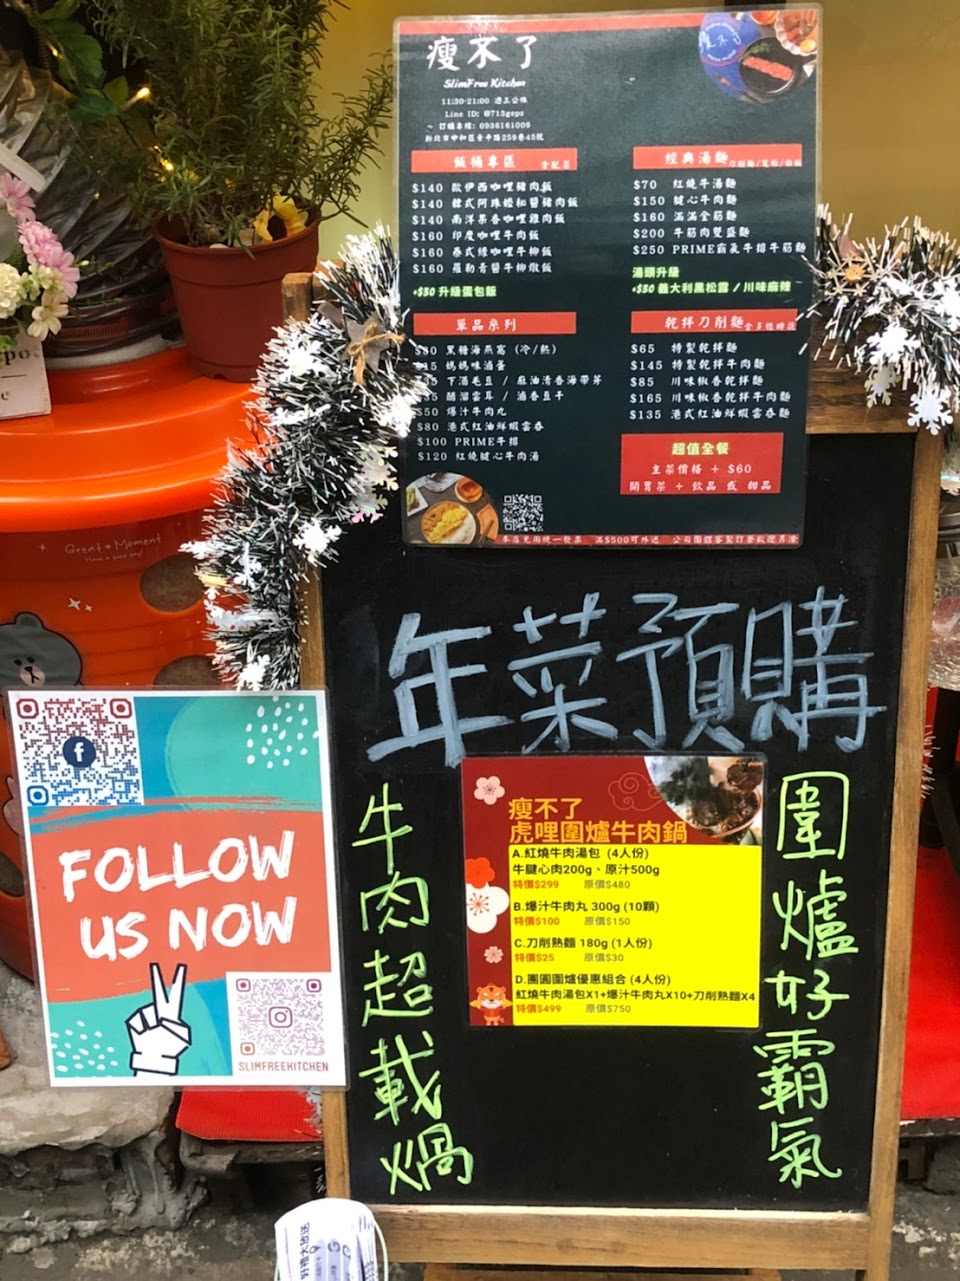 瘦不了
SlimFree Kitchen
11:30-21:00 週三公休
Line ID: @713gepz
訂購專線: 0936161009
新北市中和區景平路259巷45號
飯桶專區 含配菜
$140 歐伊西咖哩豬肉飯
$140 韓式阿珠媽秘醬豬肉飯
$140 南洋果香咖哩雞肉飯
$160 印度咖哩牛肉飯
$160 泰式綠咖哩牛柳飯
$160 羅勒青醬牛柳燉飯
+$30 升級蛋包飯
單品系列
黑糖海燕窩 (冷/熱)
媽媽味滷蛋
下酒毛豆 / 麻油清香海帶芽
醋溜雲耳 / 滷香豆干
$50 爆汁牛肉丸
$80 港式紅油鮮蝦雲吞
$100 PRIME牛排
$120 紅燒腱心牛肉湯
經典湯麵 刀削麵/寬粉/白飯
$70 紅燒牛湯麵
$150 腱心牛肉麵
$160 滿滿全筋麵
$200 牛筋肉雙盛麵
$250 PRIME霸氣牛排牛筋麵
湯頭升級
+$30 義大利黑松露 / 川味麻辣
乾拌刀削麵 含多種時蔬
$65 特製乾拌麵
$145 特製乾拌牛肉麵
$85 川味椒香乾拌麵
$165 川味椒香乾拌牛肉麵
$135 港式紅油鮮蝦雲吞麵
超值全餐
主菜價格 + $60
開胃菜 + 飲品 或 甜品
本店免用統一發票 滿$500可外送 公司團體客製訂餐歡迎月洽
Great Moment
年菜預購
牛肉超載鍋
圍爐好霸氣
瘦不了
虎哩圍爐牛肉鍋
A.紅燒牛肉湯包 (4人份)
牛腱心肉200g、原汁500g
特價$299 原價$480
B.爆汁牛肉丸 300g (10顆)
特價$100 原價$150
C.刀削熟麵 180g (1人份)
特價$25 原價$30
D.團圓圍爐優惠組合 (4人份)
紅燒牛肉湯包X1+爆汁牛肉丸X10+刀削熟麵X4
特價$499 原價$750
FOLLOW
US NOW
SLIMFREEKITCHEN